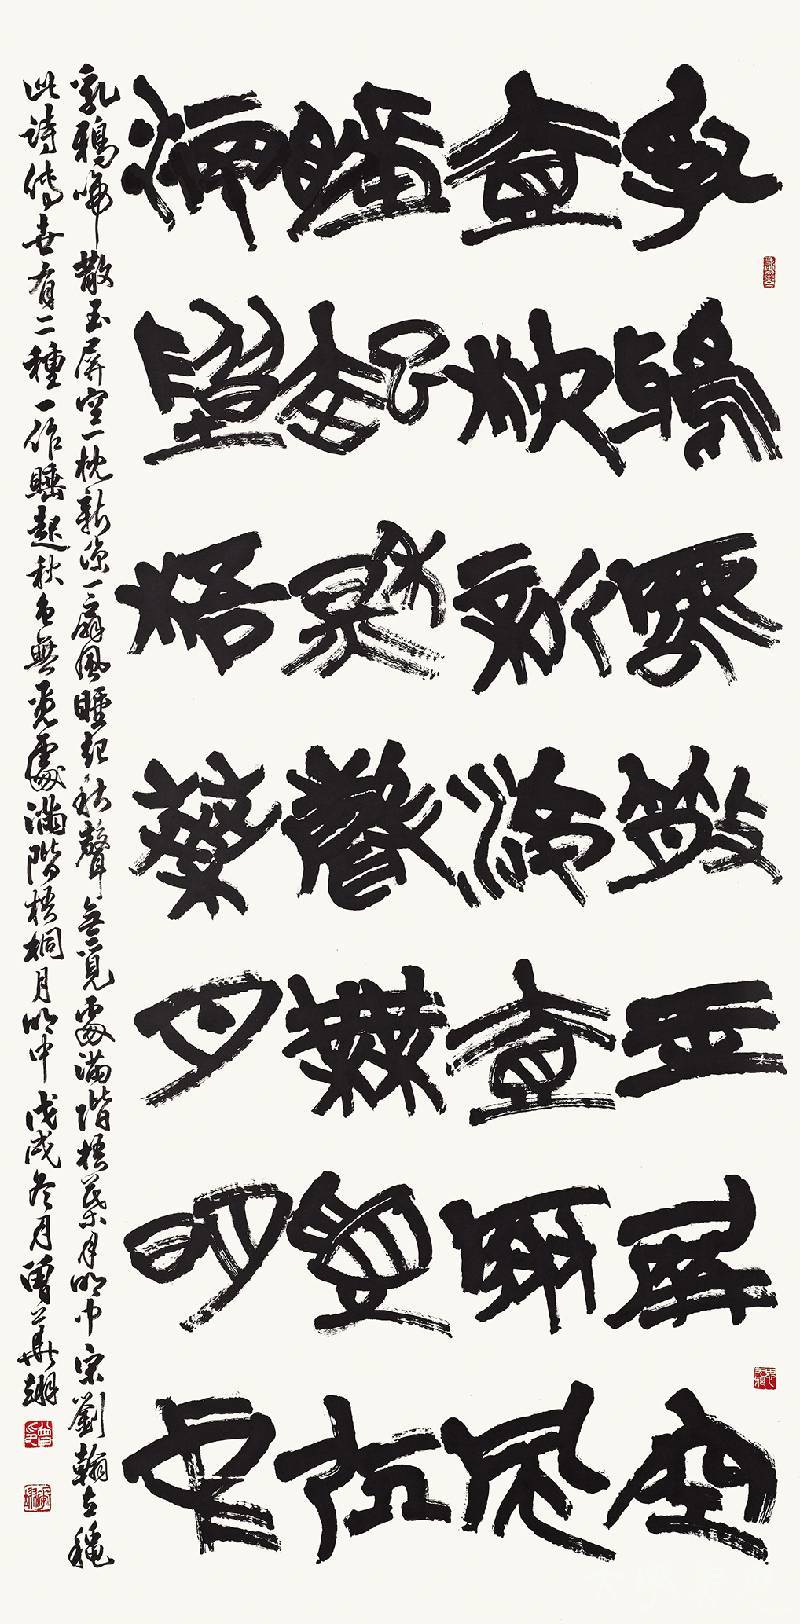 乳鴉啼散玉屏空
壹枕新涼壹扇風
睡起秋聲無覓處
滿階梧葉月明中
乳鴉啼散玉屏空一枕新涼一扇風睡起秋聲無覓處滿階梧葉月明中宋劉翰立穐
此詩傳世有二種一作睡起秋色無覓處滿階梧桐月明中戊戌冬月曾華